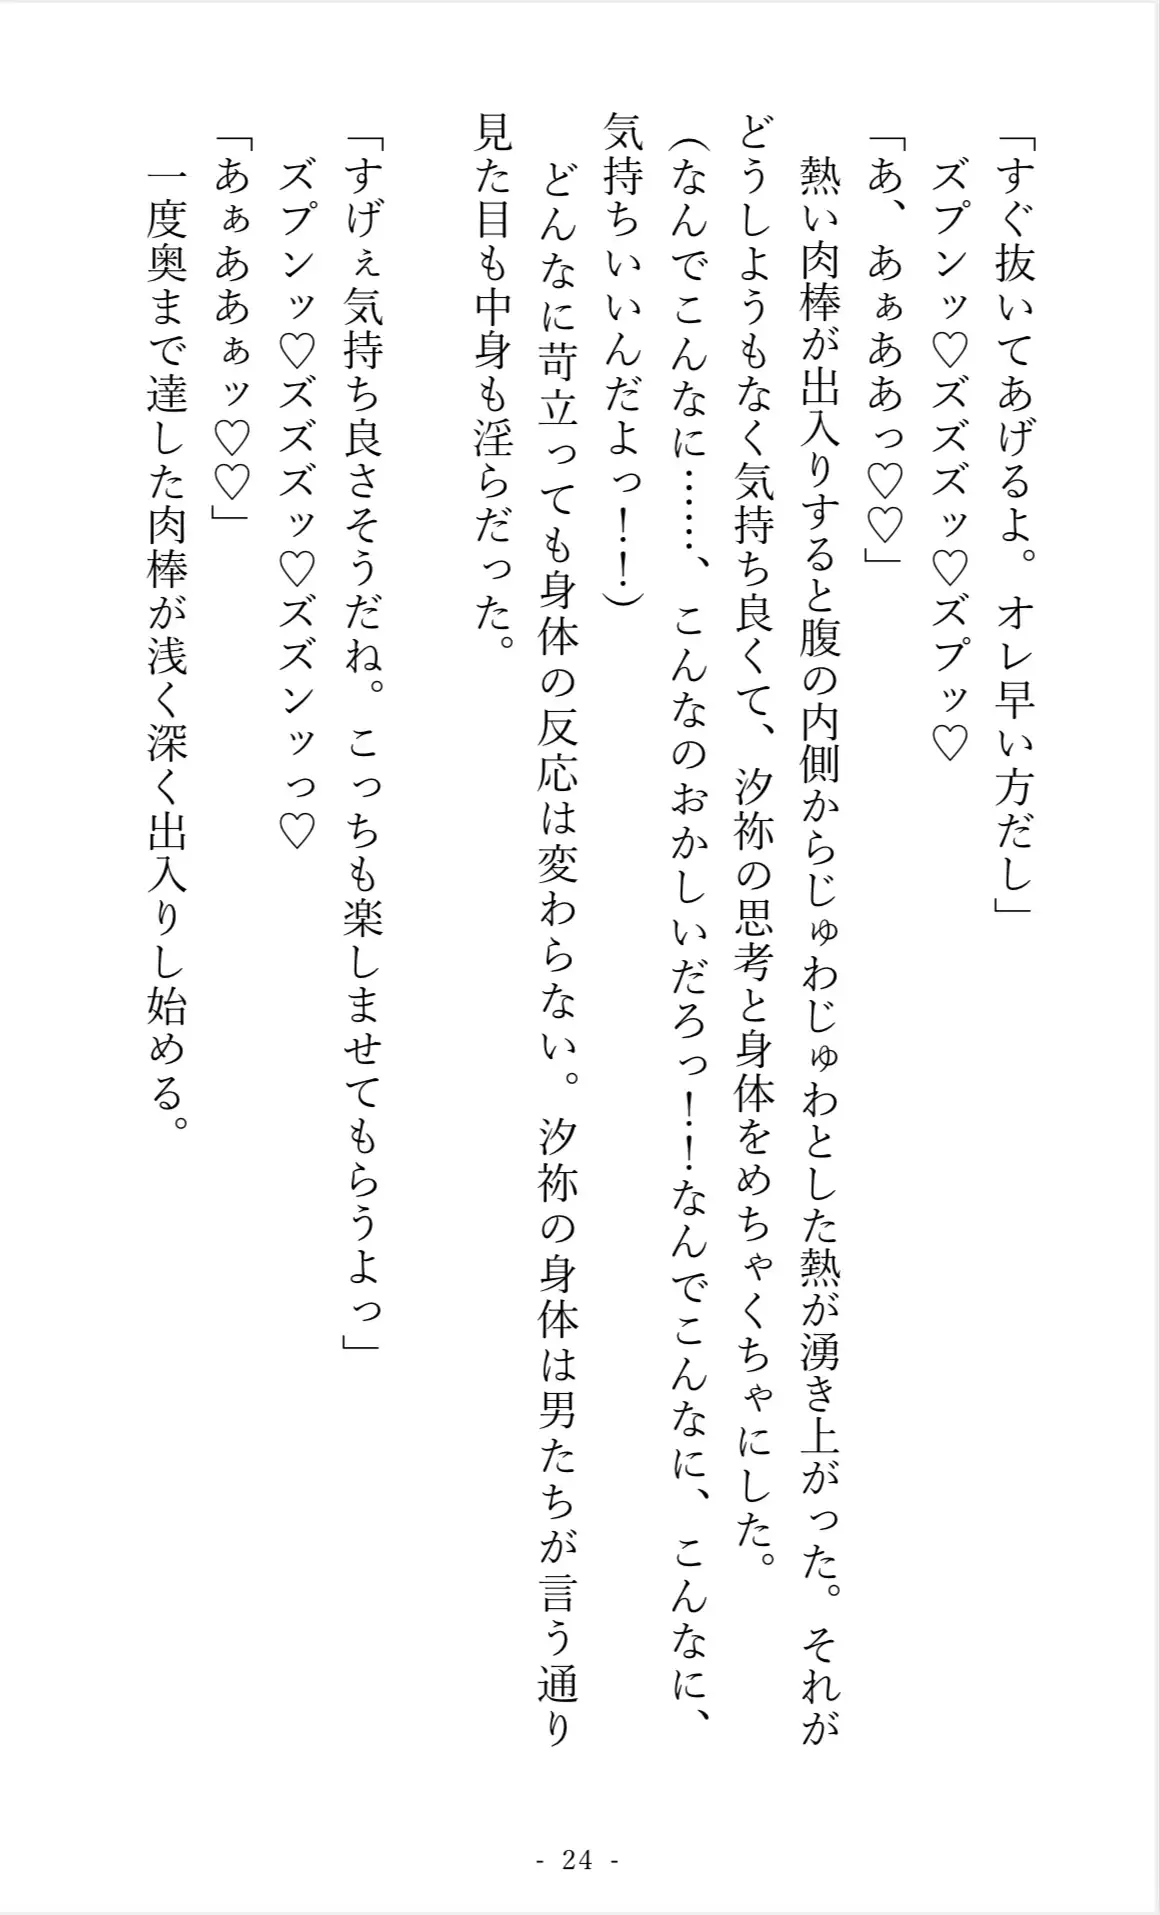 「すぐ抜いてあげるよ。オレ早い方だし」
ズプンッ♡ズズズッ♡ズプッ♡
「あ、あぁああっ♡♡」
熱い肉棒が出入りすると腹の内側からじゅわじゅわとした熱が湧き上がった。それが
どうしようもなく気持ち良くて、汐祢の思考と身体をめちゃくちゃにした。
(なんでこんなに……、こんなのおかしいだろっ！！なんでこんなに、こんなに、
気持ちいいんだよっ！！)
どんなに苛立っても身体の反応は変わらない。汐祢の身体は男たちが言う通り
見た目も中身も淫らだった。
「すげぇ気持ち良さそうだね。こっちも楽しませてもらうよっ」
ズプンッ♡ズズズッ♡ズズンッっ♡
「あぁああぁッ♡♡」
一度奥まで達した肉棒が浅く深く出入りし始める。
- 24 -